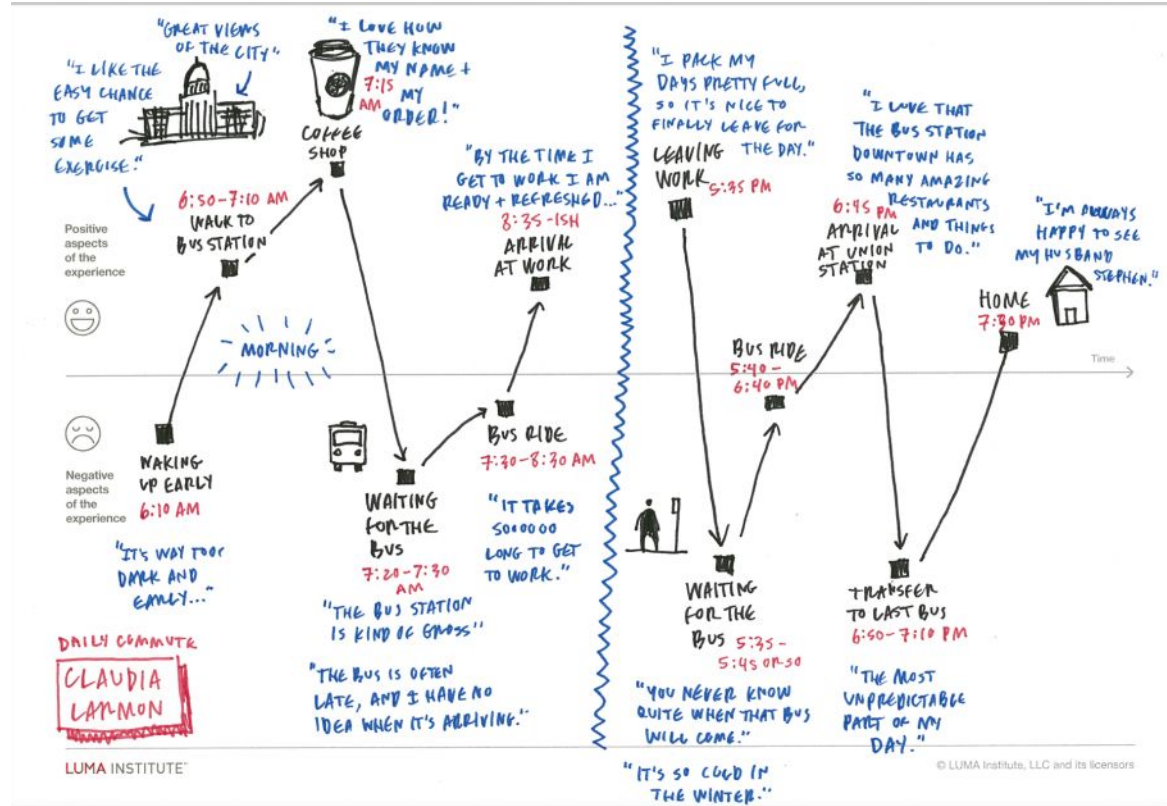 "GREAT VIEWS
OF THE CITY"
"I LIKE THE
EASY CHANCE
TO GET
SOME
EXERCISE."
6:50-7:10 AM
WALK TO
BUS STATION
"I LOVE HOW
THEY KNOW
MY NAME +
MY
ORDER!"
7:15
AM
COFFEE
SHOP
"BY THE TIME I
GET TO WORK I AM
READY + REFRESHED..."
8:35-ISH
ARRIVAL
AT WORK
Positive
aspects
of the
experience
MORNING
Negative
aspects
of the
experience
WAKING
UP EARLY
6:10 AM
"IT'S WAY TOO
DARK AND
EARLY..."
WAITING
FOR THE
BUS
7:20-7:30
AM
"THE BUS STATION
IS KIND OF GROSS"
"THE BUS IS OFTEN
LATE, AND I HAVE NO
IDEA WHEN IT'S ARRIVING."
BUS RIDE
7:30-8:30 AM
"IT TAKES
SOOOOOO
LONG TO GET
TO WORK."
DAILY COMMUTE
CLAUDIA
LARMON
"I PACK MY
DAYS PRETTY FULL,
SO IT'S NICE TO
FINALLY LEAVE FOR
THE DAY."
LEAVING
WORK
5:35 PM
"I LOVE THAT
THE BUS STATION
DOWNTOWN HAS
SO MANY AMAZING
RESTAURANTS
AND THINGS
TO DO."
6:45 PM
ARRIVAL
AT UNION
STATION
"I'M ALWAYS
HAPPY TO SEE
MY HUSBAND
STEPHEN."
HOME
7:30 PM
Time
BUS RIDE
5:40-
6:40 PM
WAITING
FOR THE
BUS
5:35-
5:45 OR SO
"YOU NEVER KNOW
QUITE WHEN THAT BUS
WILL COME."
"IT'S SO COLD IN
THE WINTER."
TRANSFER
TO LAST BUS
6:50-7:10 PM
"THE MOST
UNPREDICTABLE
PART OF MY
DAY."
LUMA INSTITUTE™
© LUMA Institute, LLC and its licensors